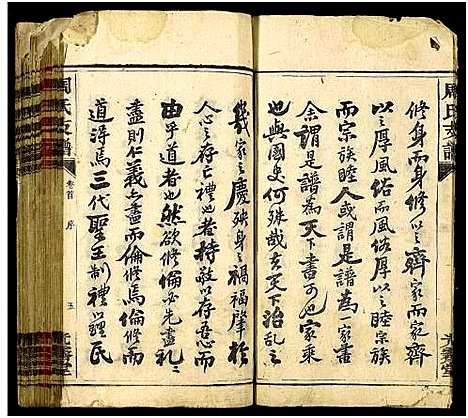 修身而身修以之齊家而家齊
以之厚風俗而風俗厚以之睦宗族
而宗族睦人或謂是譜為一家書
余謂是譜為天下書可家乘
也與國史何殊哉夫天下治亂之
幾家之慶殃身之禍福肇於
人心之存亡禮也者持敬以存吾心而
由乎道者也然欲修倫必先盡禮禮
盡則仁義亦盡而倫修焉倫修而
道得焉三代聖王制禮以鐸民
周氏支譜
卷首
序
五
光霽堂
周氏支譜
光霽堂